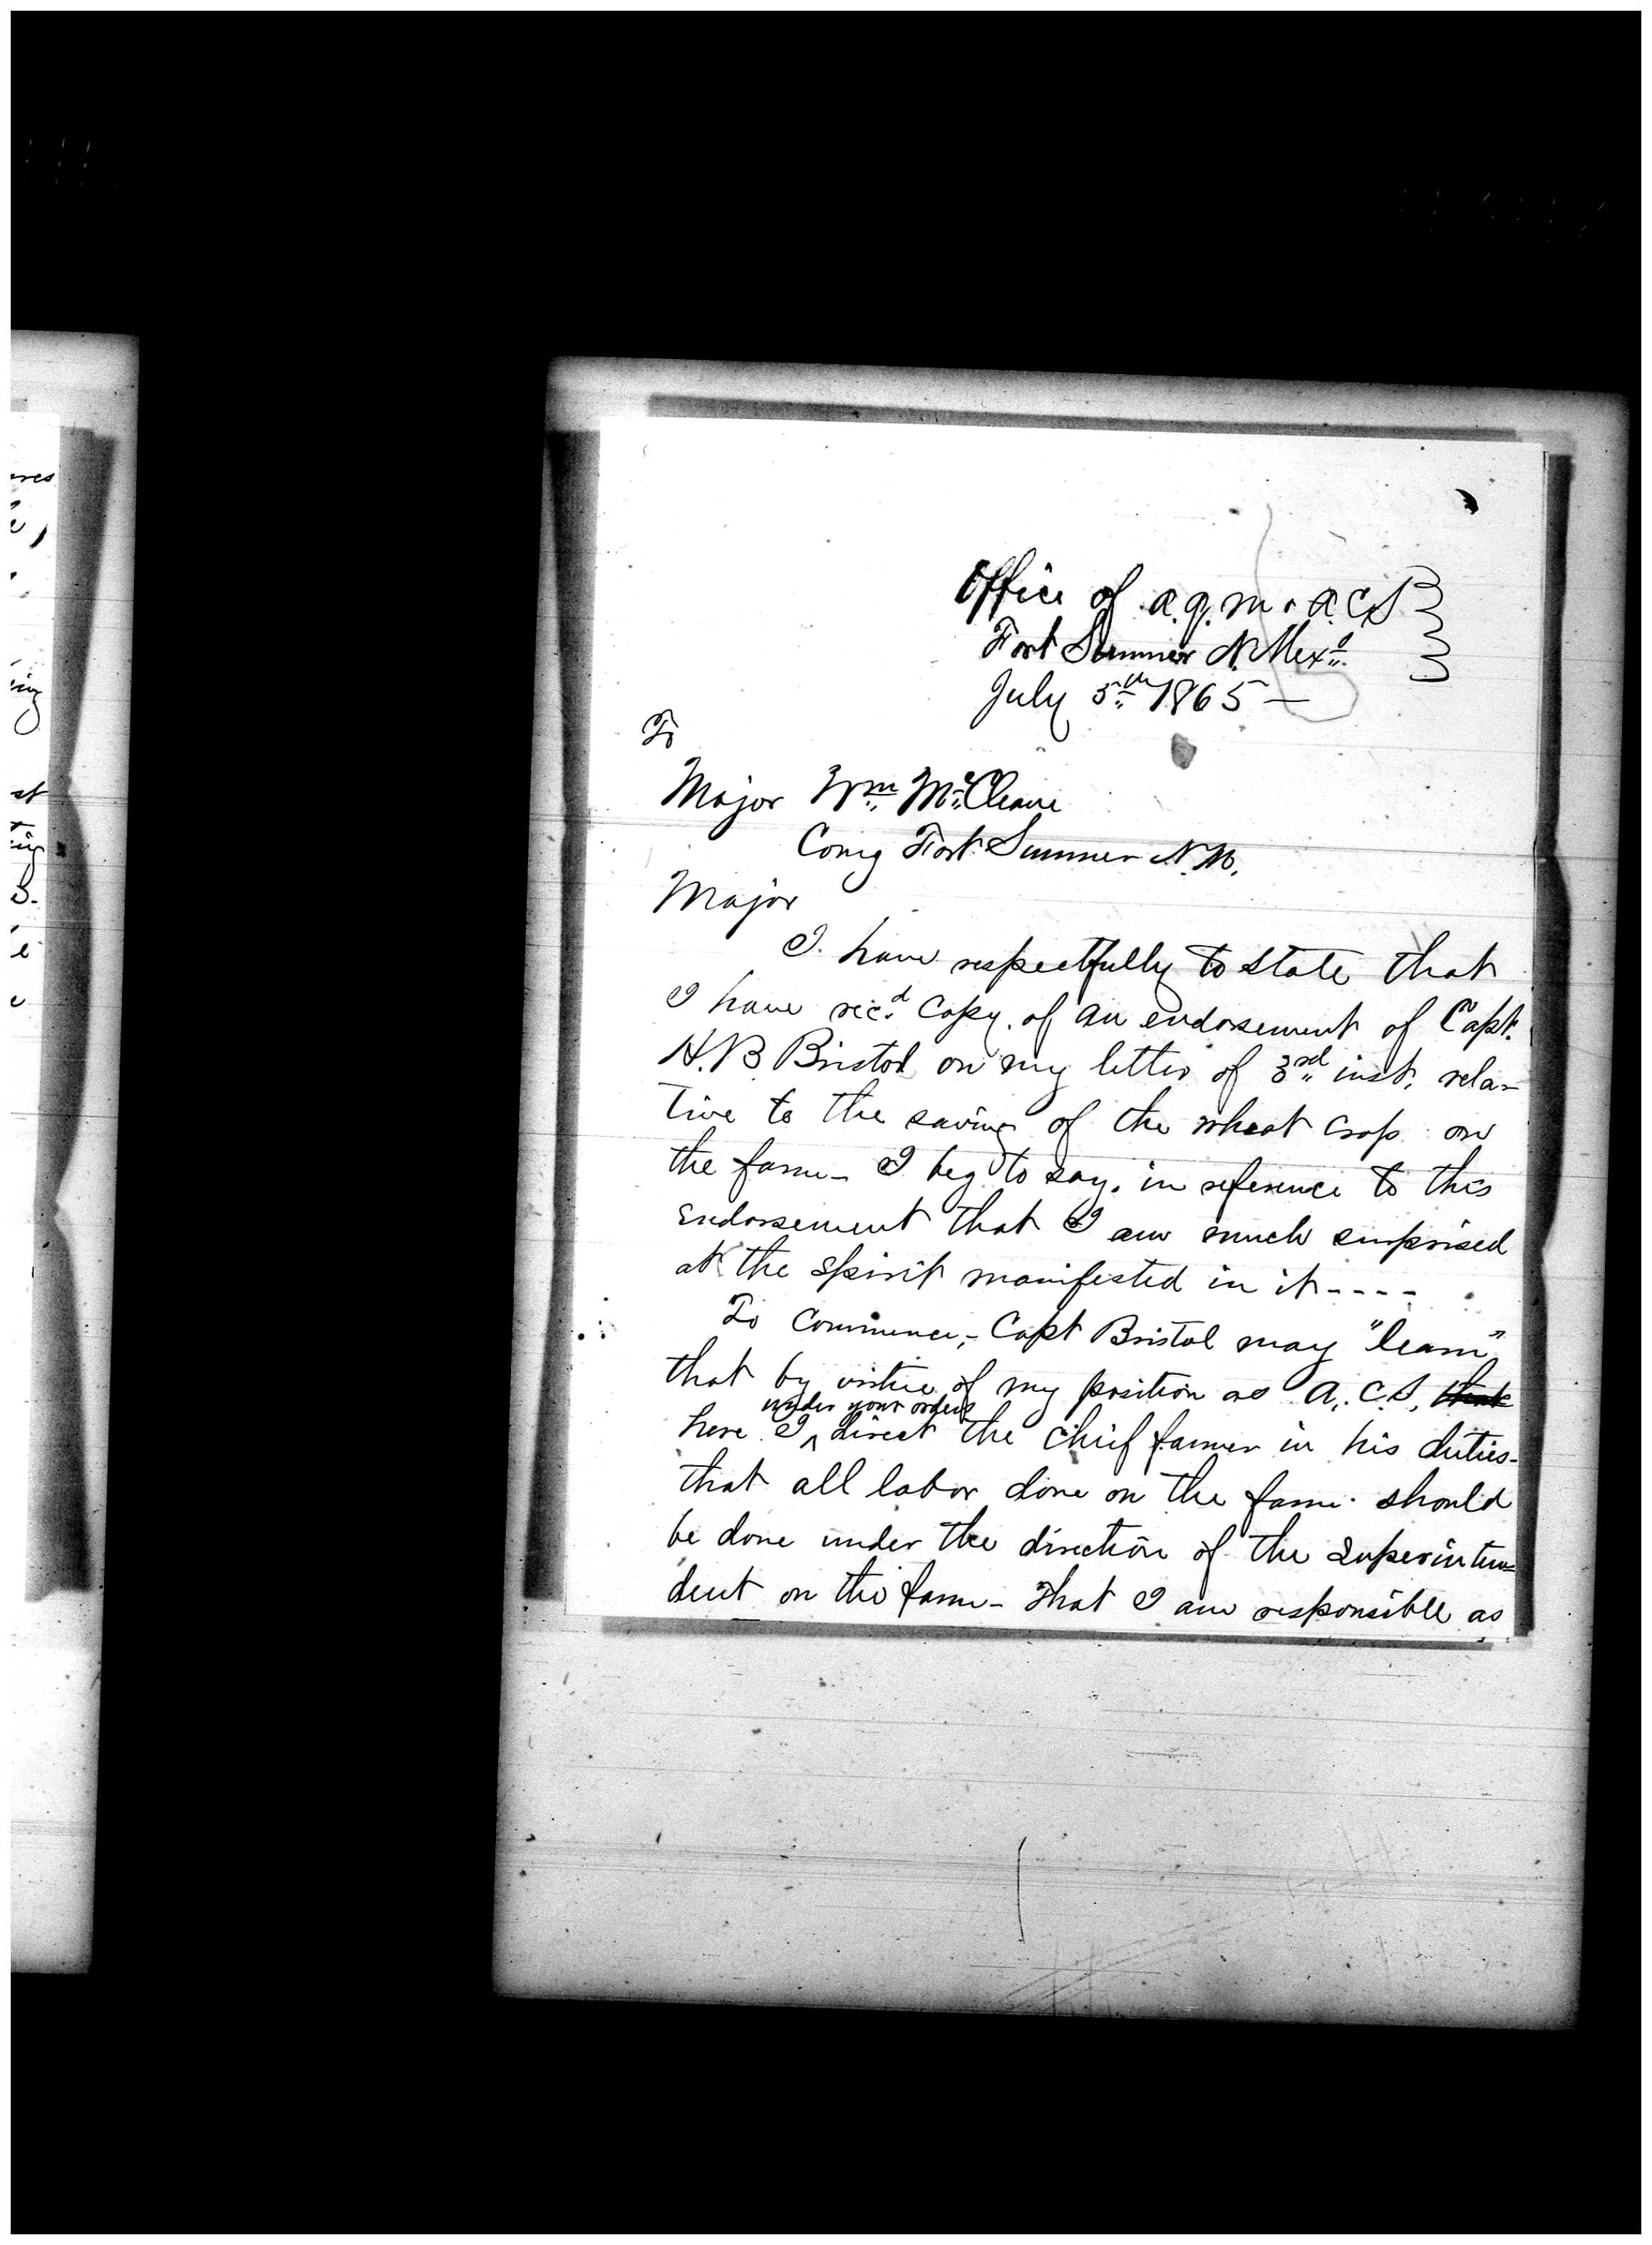 Office of A.Q.M. & A.C.S
Fort Sumner N. Mexo
July 5th 1865 —
To
Major Wm McCleave
Comg Fort Sumner N.M.
Major
I have respectfully to state that
I have recd Copy of an endorsement of Capt.
H.B Bristol on my letter of 3rd inst. rela-
tive to the saving of the wheat crop on
the farm – I beg to say, in reference to this
endorsement that I am much surprised
at the spirit manifested in it - - - -
To Commence, – Capt Bristol may "learn"
that by virtue of my position as A.C.S. that
under your orders
here I ^ direct the chief farmer in his duties –
that all labor done on the farm should
be done under the direction of the Superinten=
dent on the farm – That I am responsible as